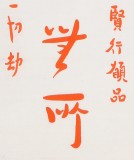 賢行願品
無所
一切劫